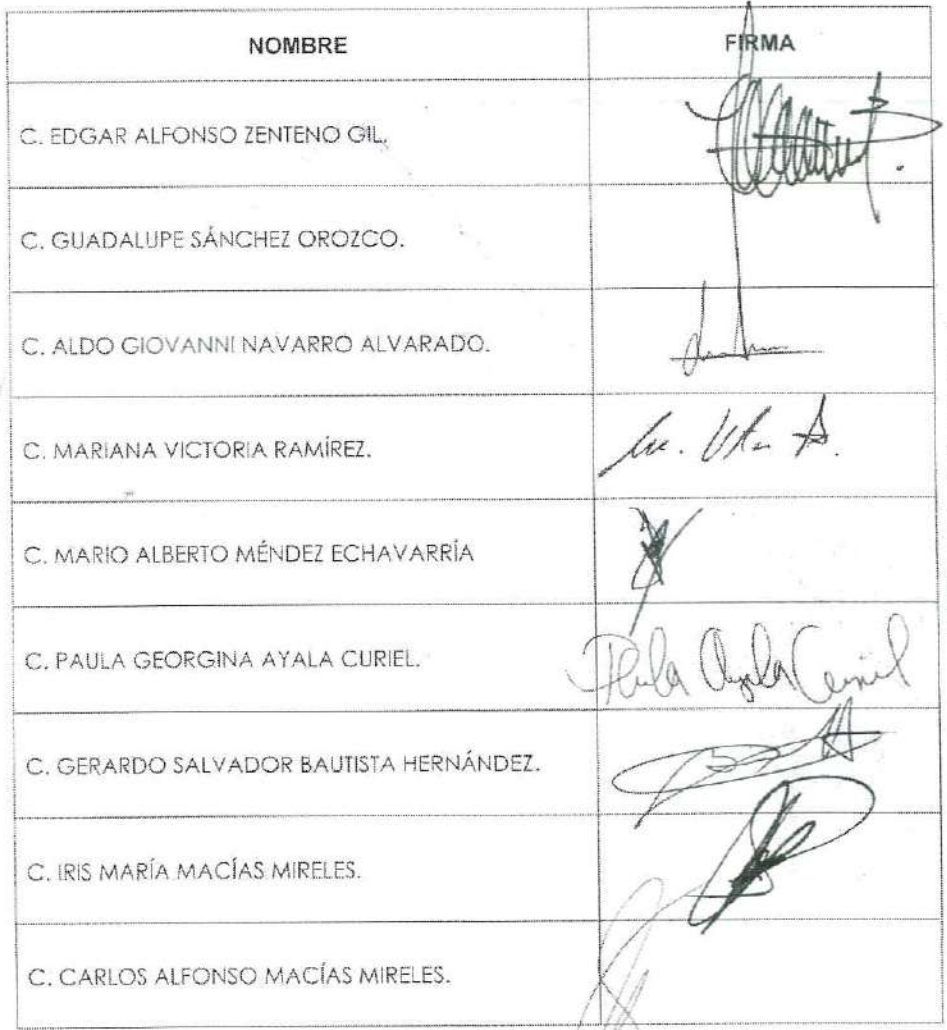 NOMBRE
FIRMA
C. EDGAR ALFONSO ZENTENO GIL.
C. GUADALUPE SÁNCHEZ OROZCO.
C. ALDO GIOVANNI NAVARRO ALVARADO.
C. MARIANA VICTORIA RAMÍREZ.
C. MARIO ALBERTO MÉNDEZ ECHAVARRÍA
C. PAULA GEORGINA AYALA CURIEL.
Paula Ayala Curiel
C. GERARDO SALVADOR BAUTISTA HERNÁNDEZ.
C. IRIS MARÍA MACÍAS MIRELES.
C. CARLOS ALFONSO MACÍAS MIRELES.